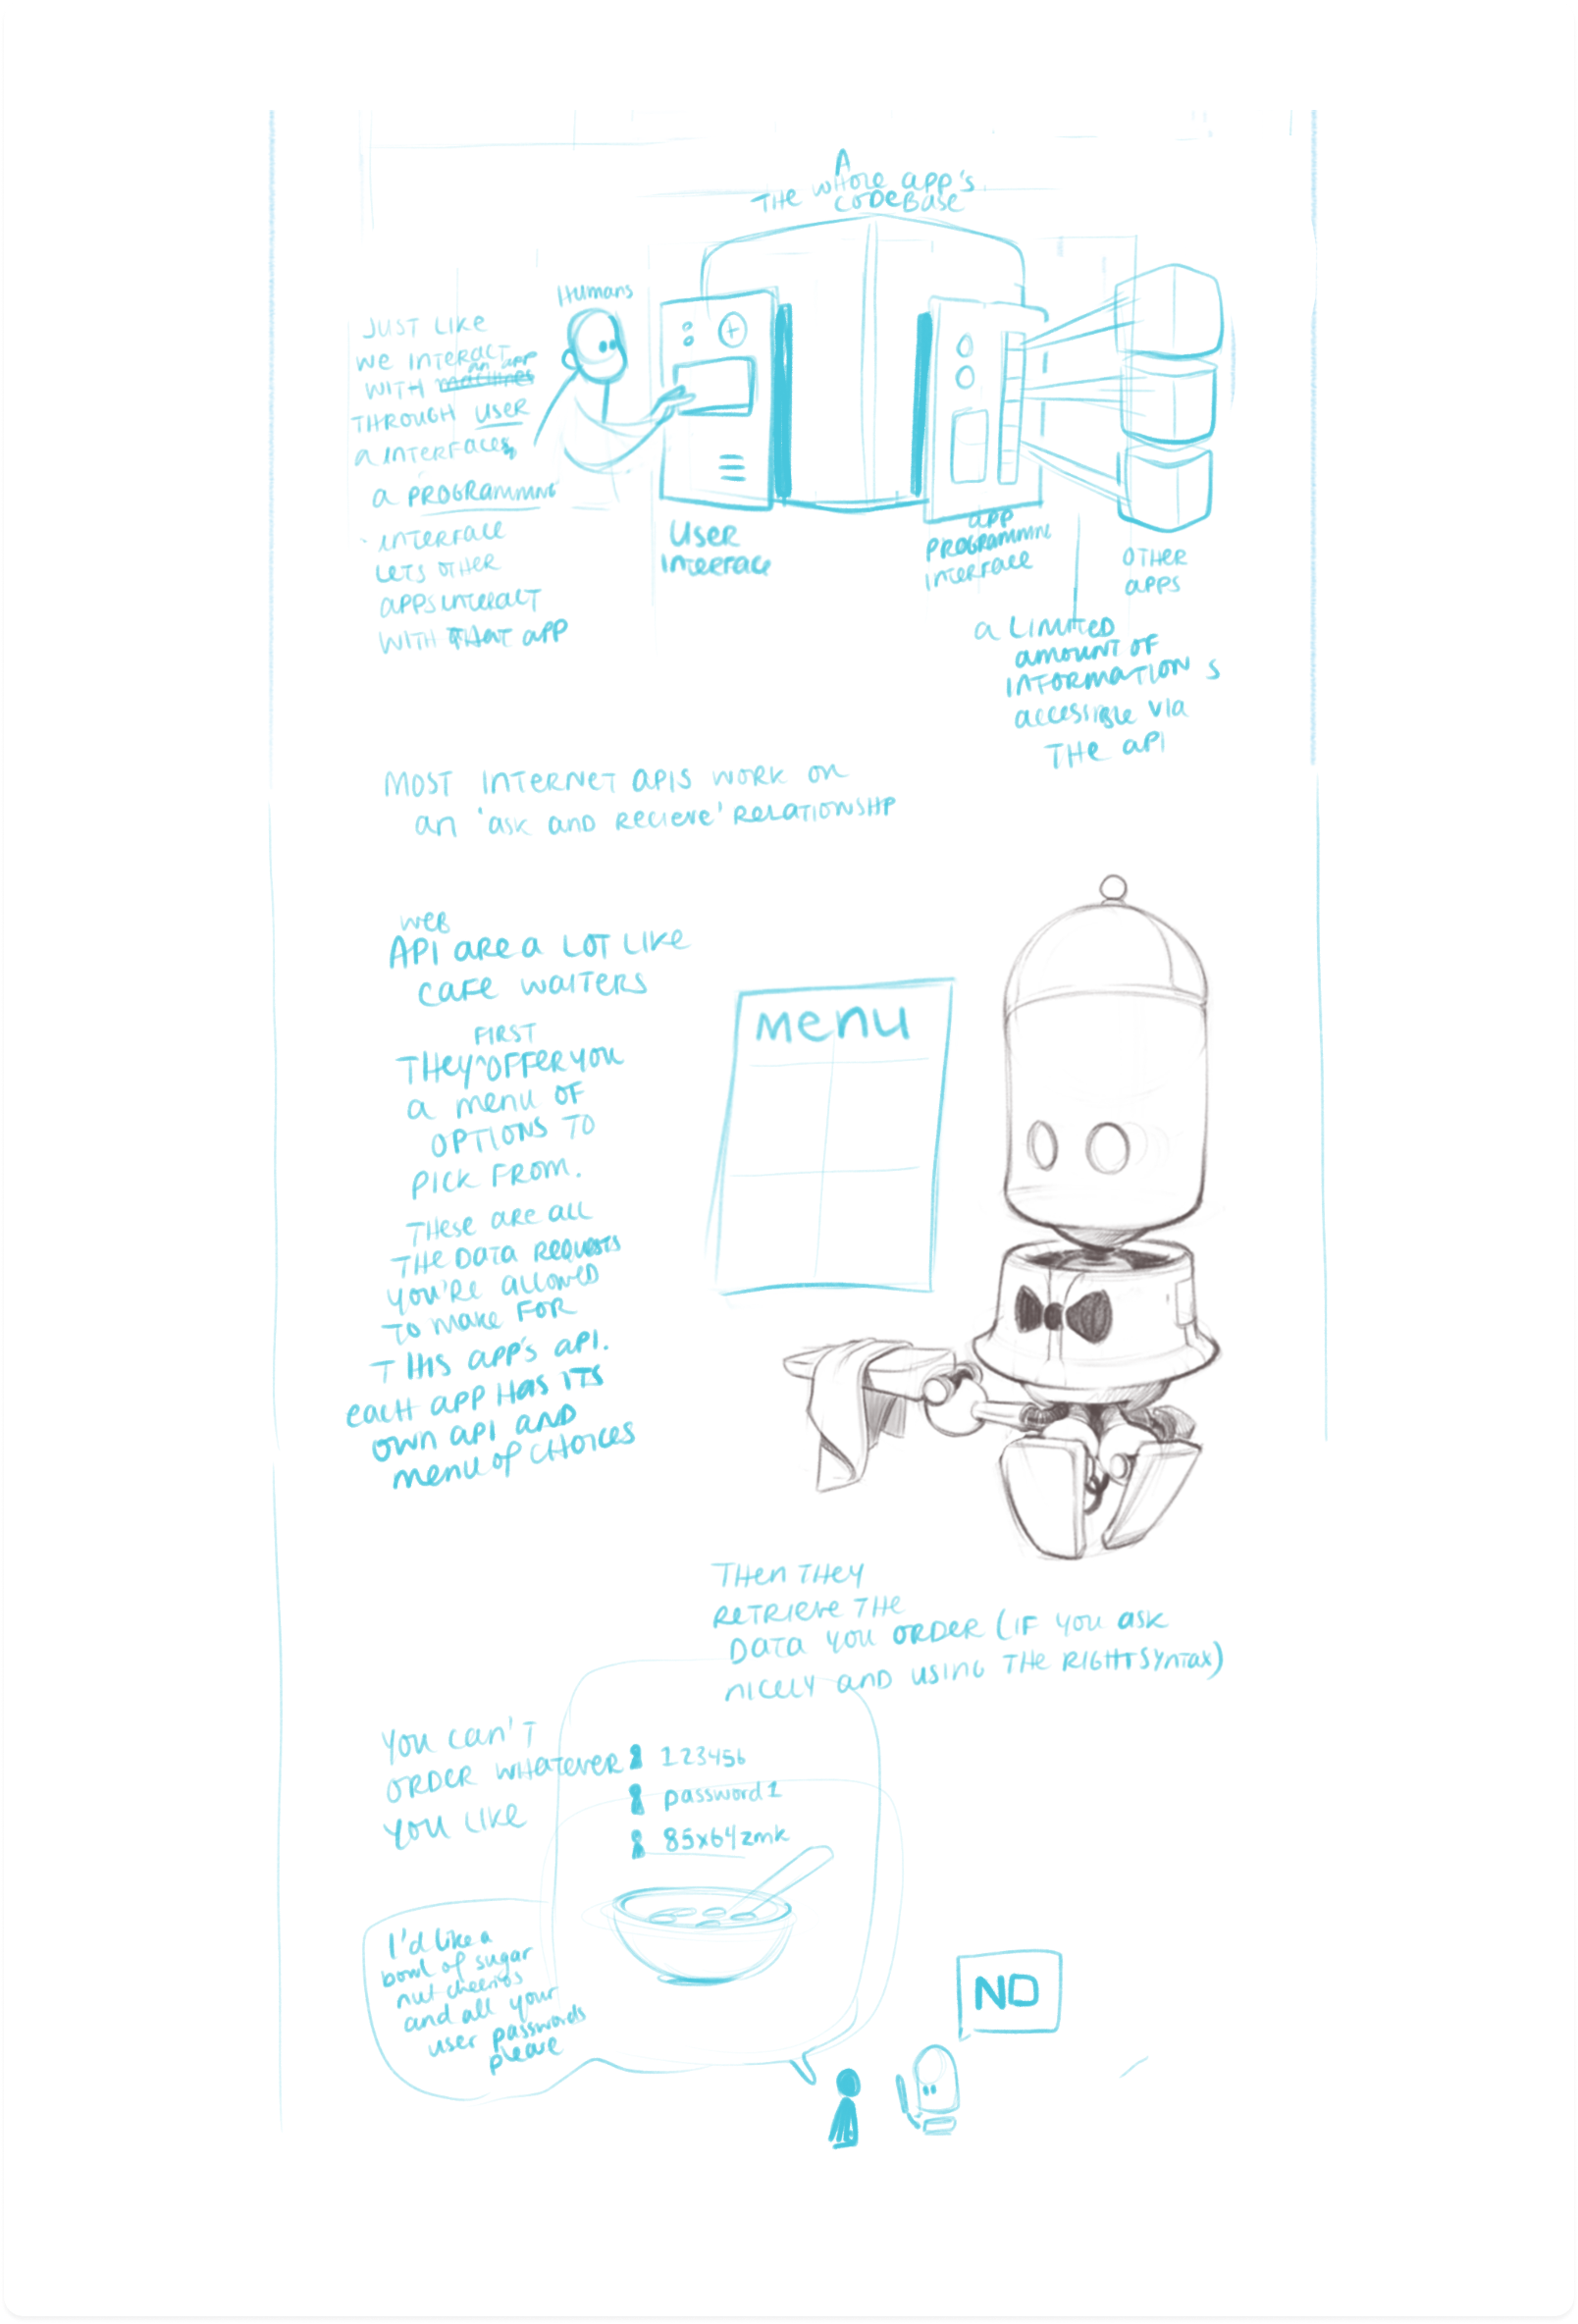 A
THE WHOLE APP'S
CODEBASE
HUMANS
JUST LIKE
WE INTERACT
AN APP
WITH machines
THROUGH USER
A INTERFACES,
A PROGRAMMING
INTERFACE
LETS OTHER
APPS INTERACT
WITH THAT APP
USER
INTERFACE
APP
PROGRAMMING
INTERFACE
OTHER
APPS
A LIMITED
AMOUNT OF
INFORMATION S
ACCESSIBLE VIA
THE API
MOST INTERNET APIS WORK ON
AN 'ASK AND RECIEVE' RELATIONSHIP
WEB
API ARE A LOT LIKE
CAFE WAITERS
FIRST
THEY ^ OFFER YOU
A MENU OF
OPTIONS TO
PICK FROM.
THESE ARE ALL
THE DATA REQUESTS
YOU'RE ALLOWED
TO MAKE FOR
THIS APP'S API.
EACH APP HAS ITS
OWN API AND
MENU OF CHOICES
MENU
THEN THEY
RETRIEVE THE
DATA YOU ORDER (IF YOU ASK
NICELY AND USING THE RIGHT SYNTAX)
YOU CAN'T
ORDER WHATEVER
YOU LIKE
123456
password1
85x64zmk
I'd like a
bowl of sugar
nut cheerios
and all your
user passwords
please
NO